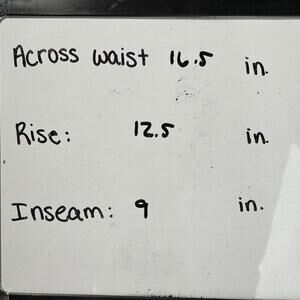 Across waist 16.5 in.
Rise: 12.5 in.
Inseam: 9 in.